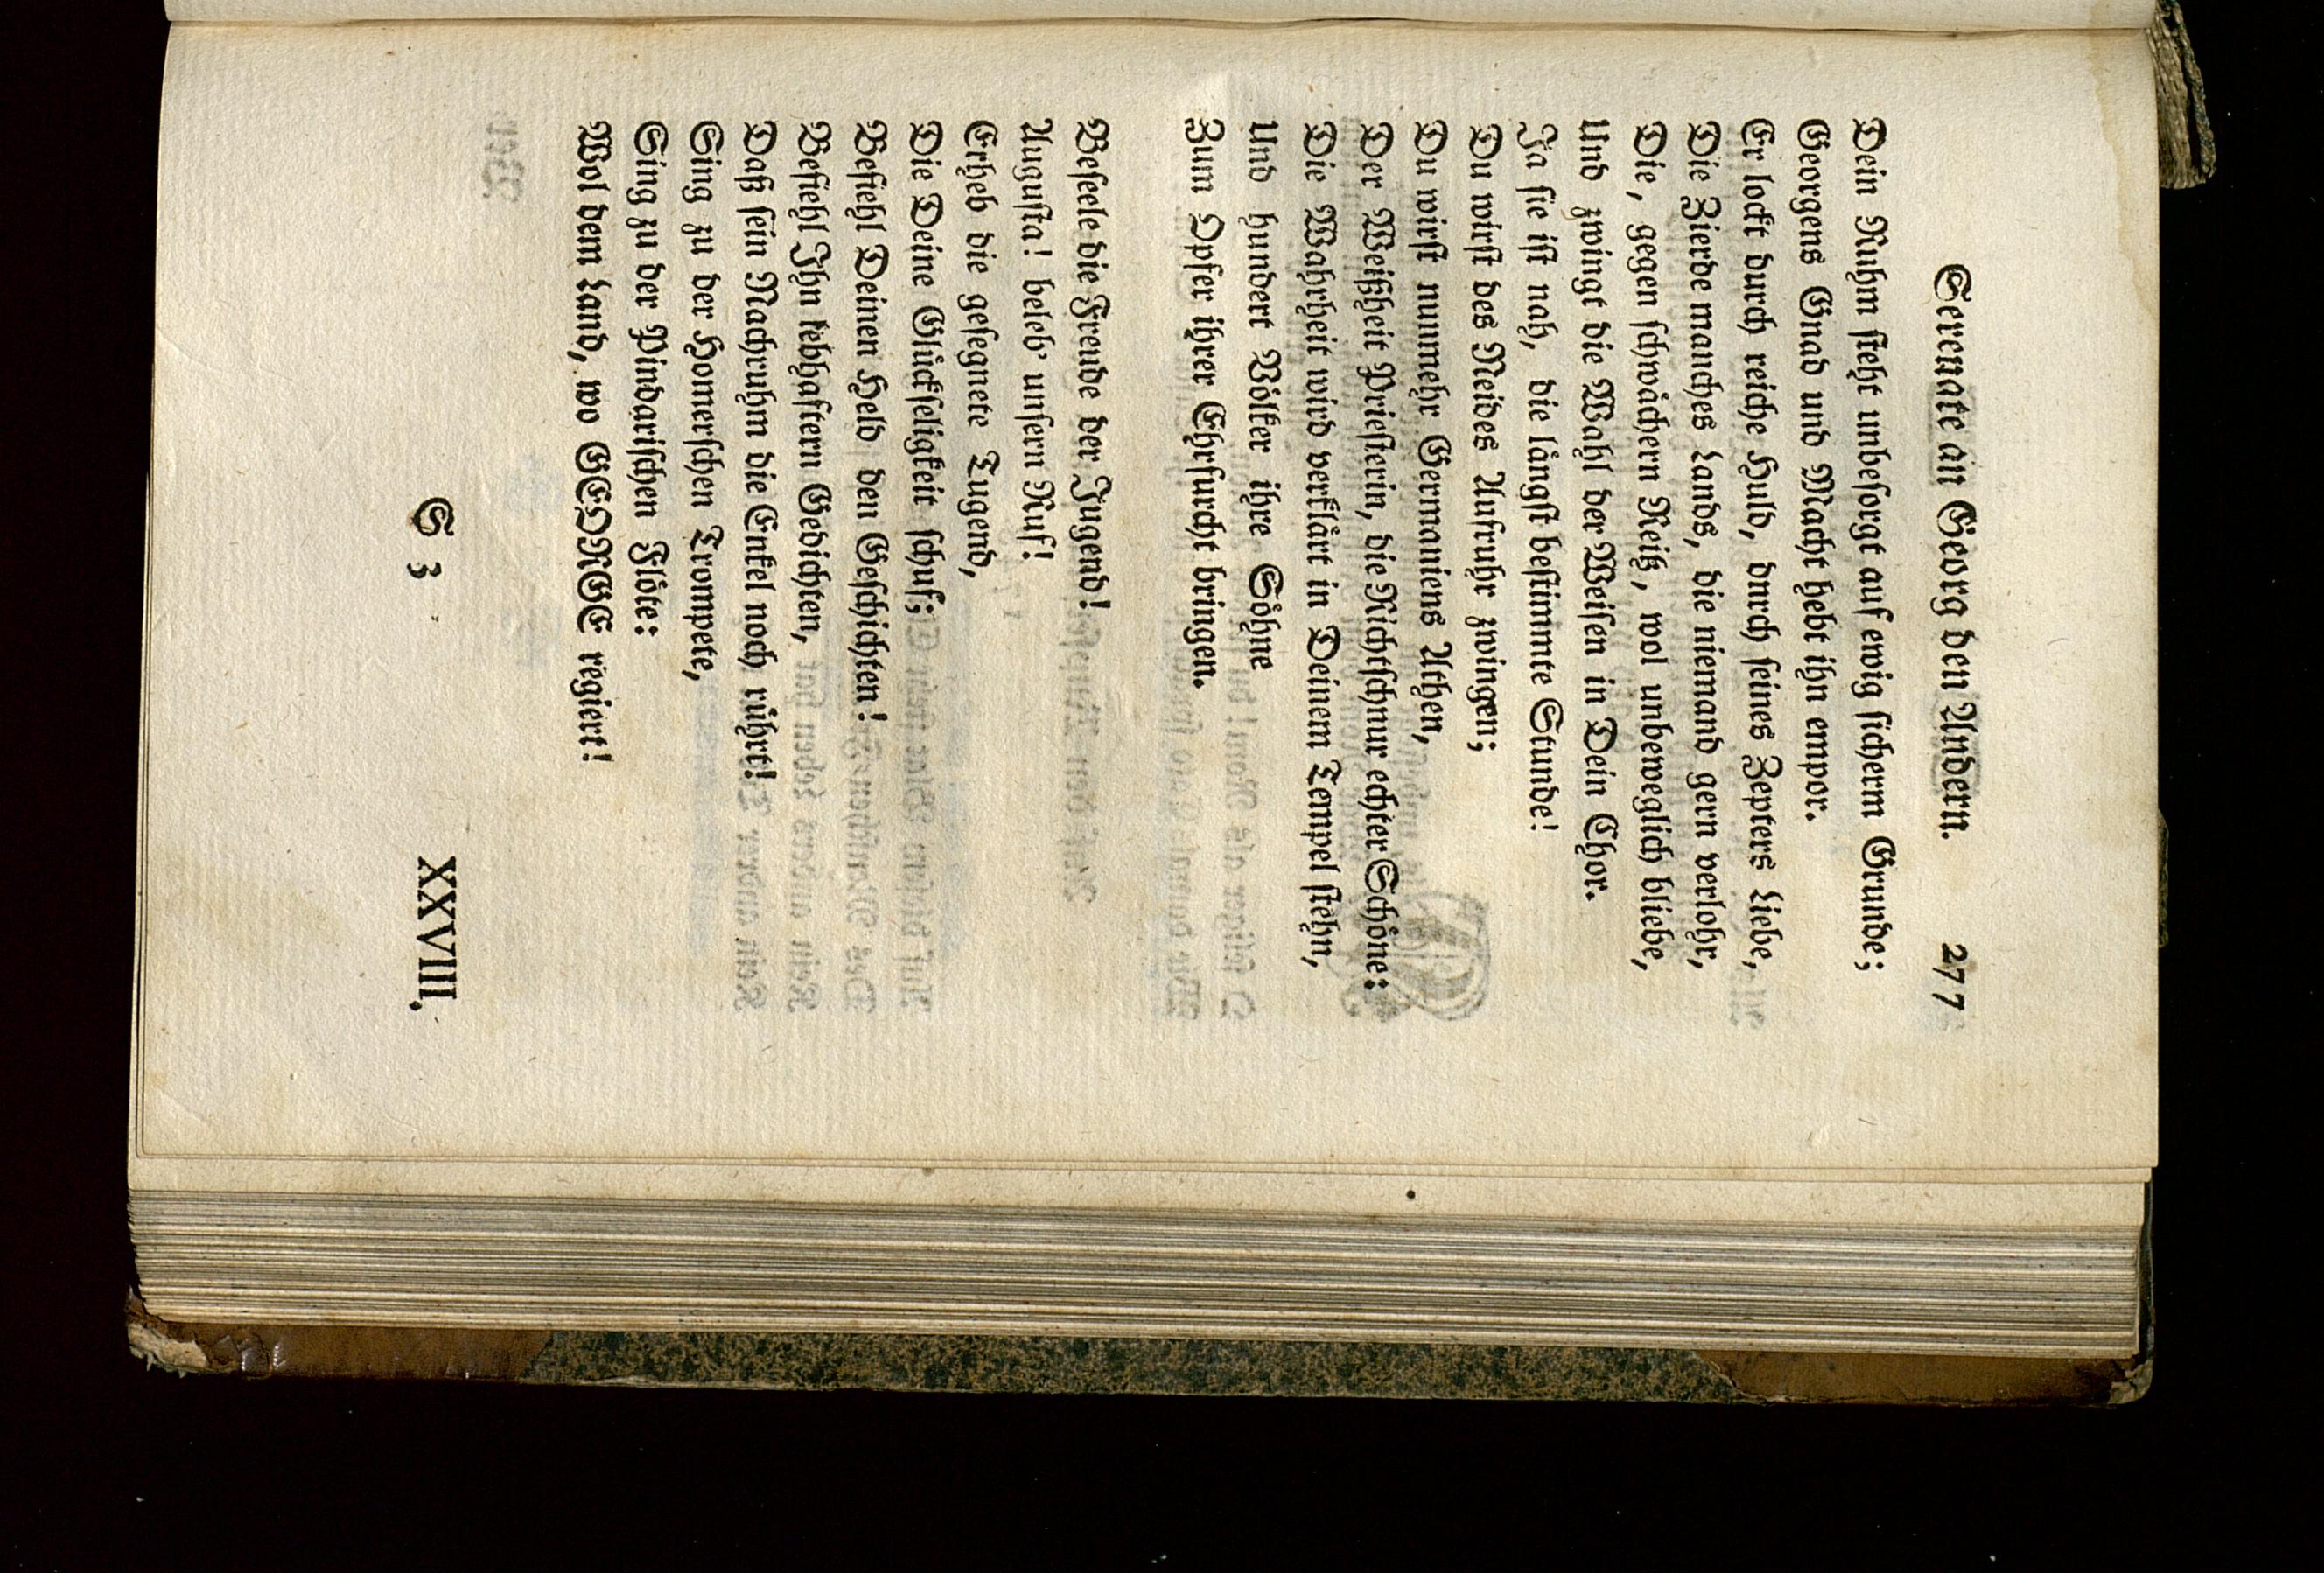 Serenate an Georg den Andern. 277
Dein Ruhm steht unbesorgt auf ewig sicherm Grunde;
Georgens Gnad und Macht hebt ihn empor.
Er lockt durch reiche Huld, durch seines Zepters Liebe,
Die Zierde manches Lands, die niemand gern verlohr,
Die, gegen schwächern Reitz, wol unbeweglich bliebe,
Und zwingt die Wahl der Weisen in Dein Chor.
Ja sie ist nah, die längst bestimmte Stunde!
Du wirst des Neides Aufruhr zwingen;
Du wirst nunmehr Germaniens Athen,
Der Weißheit Priesterin, die Richtschnur echter Schöne:
Die Wahrheit wird verklärt in Deinem Tempel stehn,
Und hundert Völker ihre Söhne
Zum Opfer ihrer Ehrfurcht bringen.
Beseele die Freude der Jugend!
Augusta! beleb' unsern Ruf!
Erheb die gesegnete Tugend,
Die Deine Glückseligkeit schuf;
Befiehl Deinen Held den Geschichten!
Befiehl Ihn lebhaftern Gedichten,
Daß sein Nachruhm die Enkel noch rührt!
Sing zu der Homerschen Trompete,
Sing zu der Pindarischen Flöte:
Wol dem Land, wo GEORGE regiert!
S 3 XXVIII.